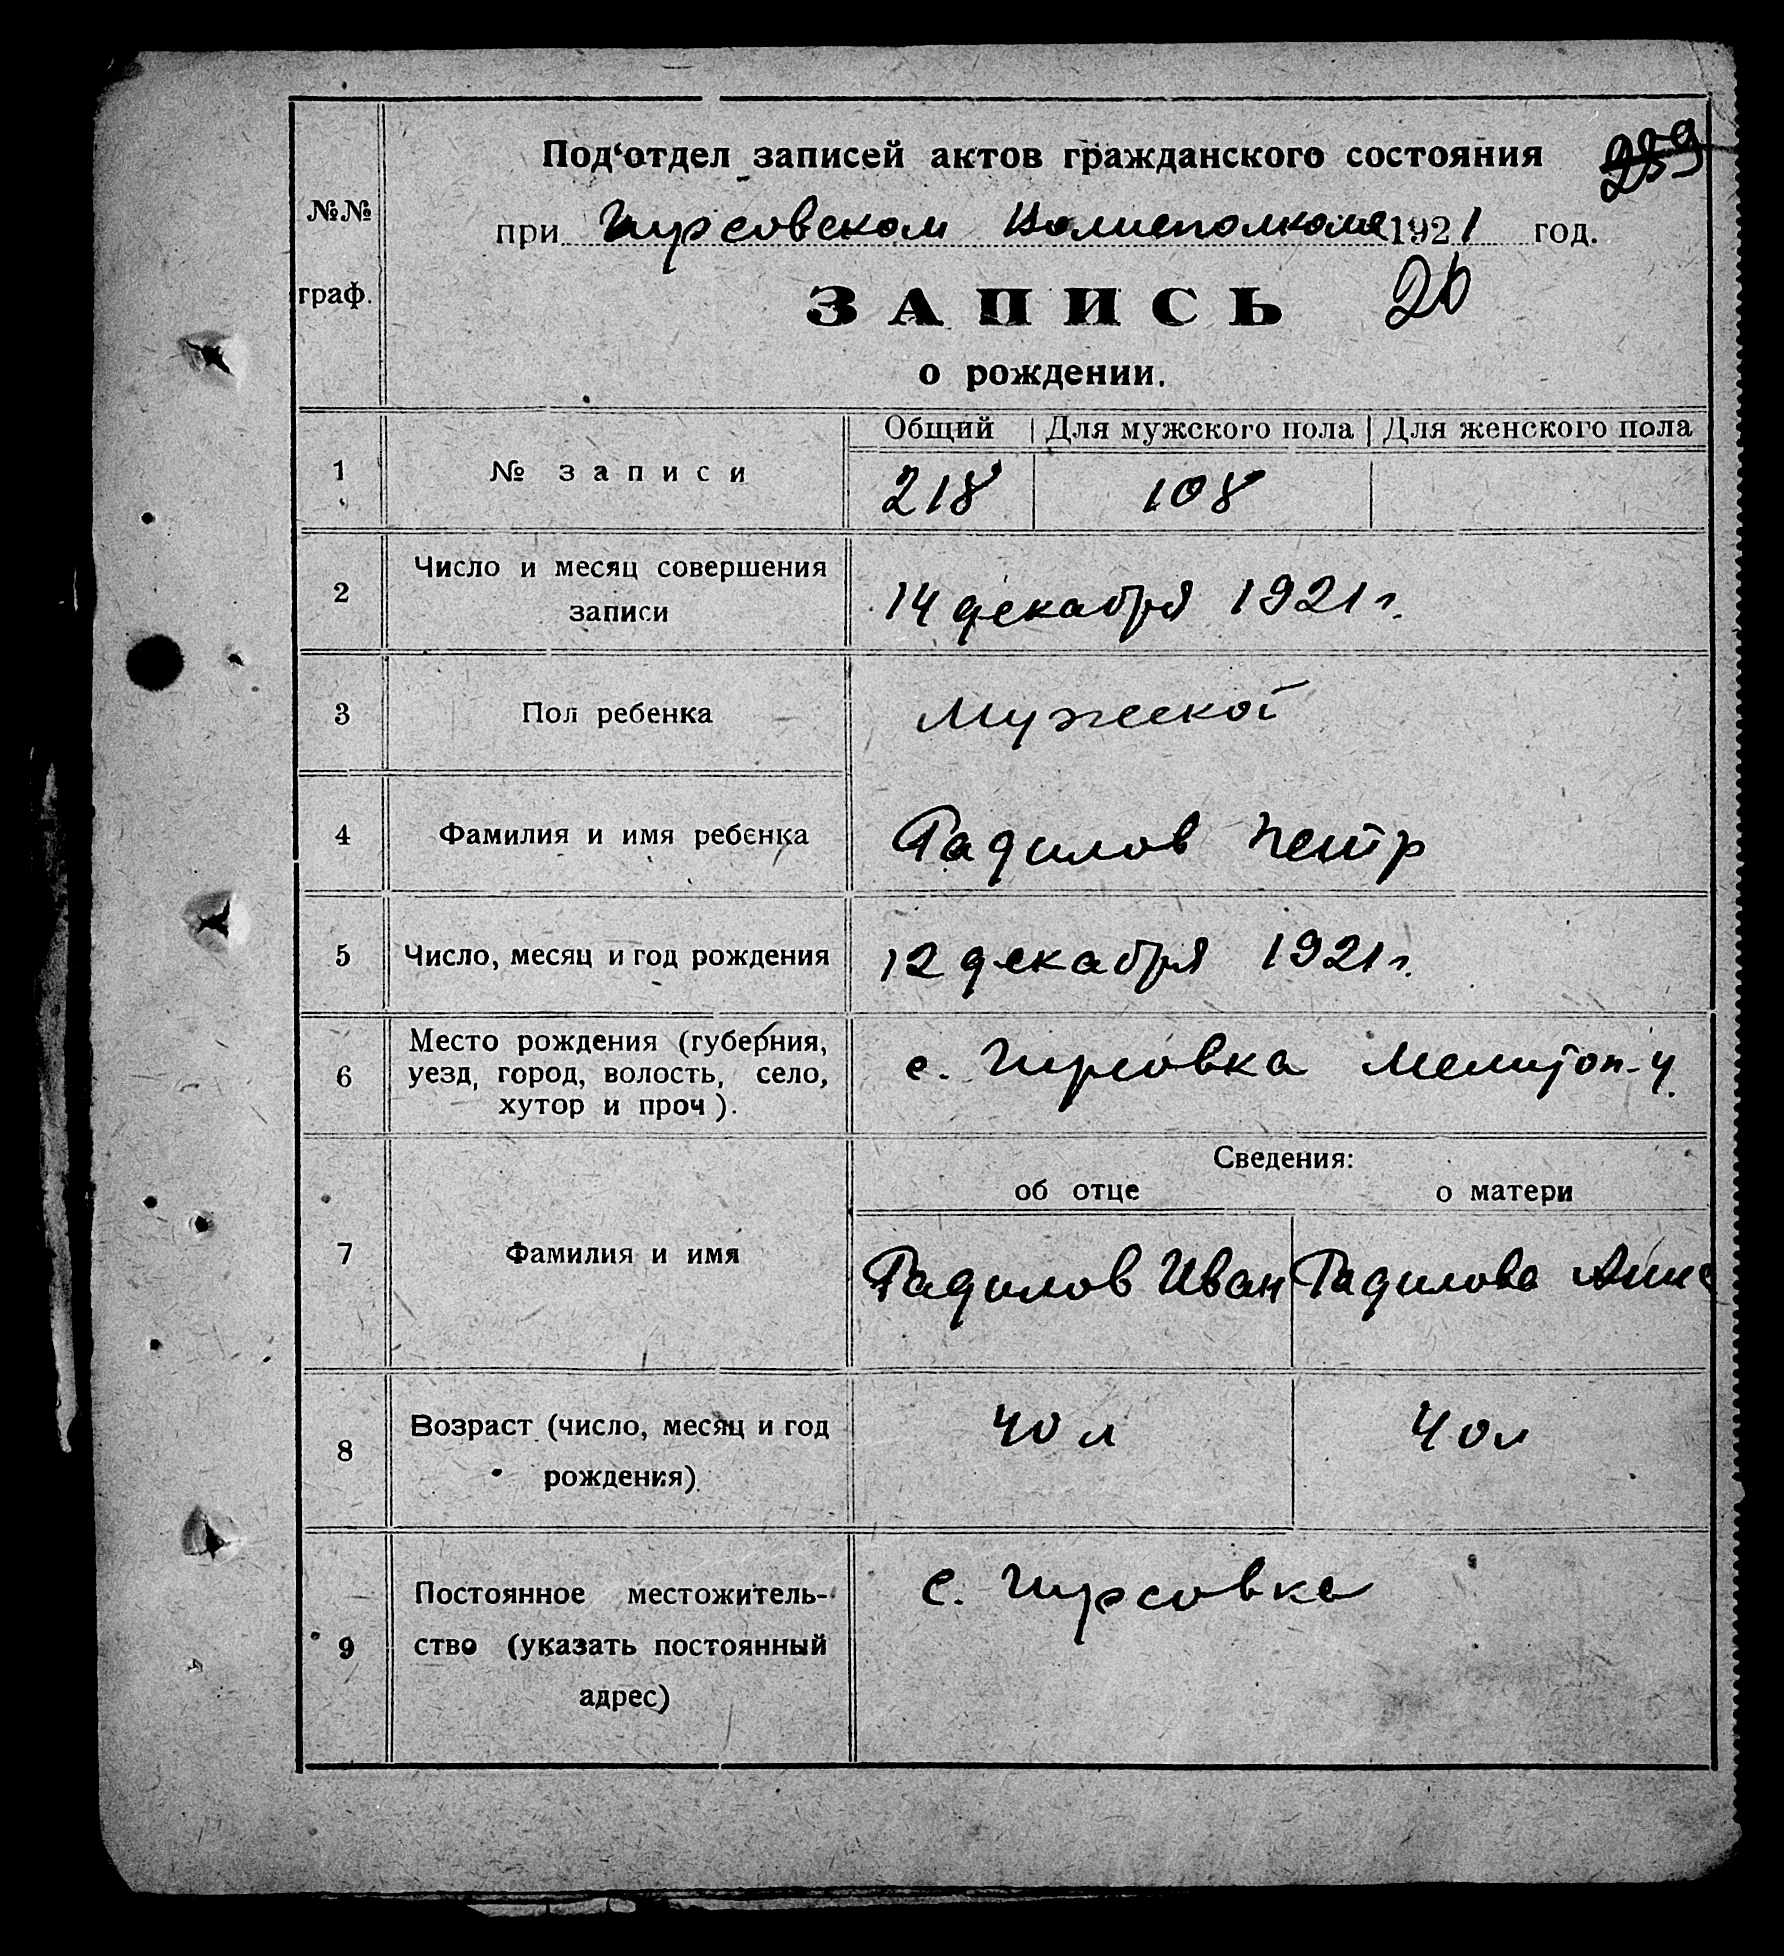 №№
граф.
Под‘отдел записей актов гражданского состояния
259
при Гирсовском Волисполкоме 1921 год.
ЗАПИСЬ
26
о рождении.
Общий Для мужского пола Для женского пола
1 № записи 218 108
2 Число и месяц совершения
записи
14 декабря 1921 г.
3 Пол ребенка Мужской
4 Фамилия и имя ребенка Гадилов Петр
5 Число, месяц и год рождения 12 декабря 1921 г.
6 Место рождения (губерния,
уезд, город, волость, село,
хутор и проч).
с. Гирсовка Мелитоп. у.
Сведения:
об отце о матери
7 Фамилия и имя Гадилов Иван Гадилова Анна
8 Возраст (число, месяц и год
рождения)
40 л 40 л
9 Постоянное местожитель-
ство (указать постоянный
адрес)
с. Гирсовка